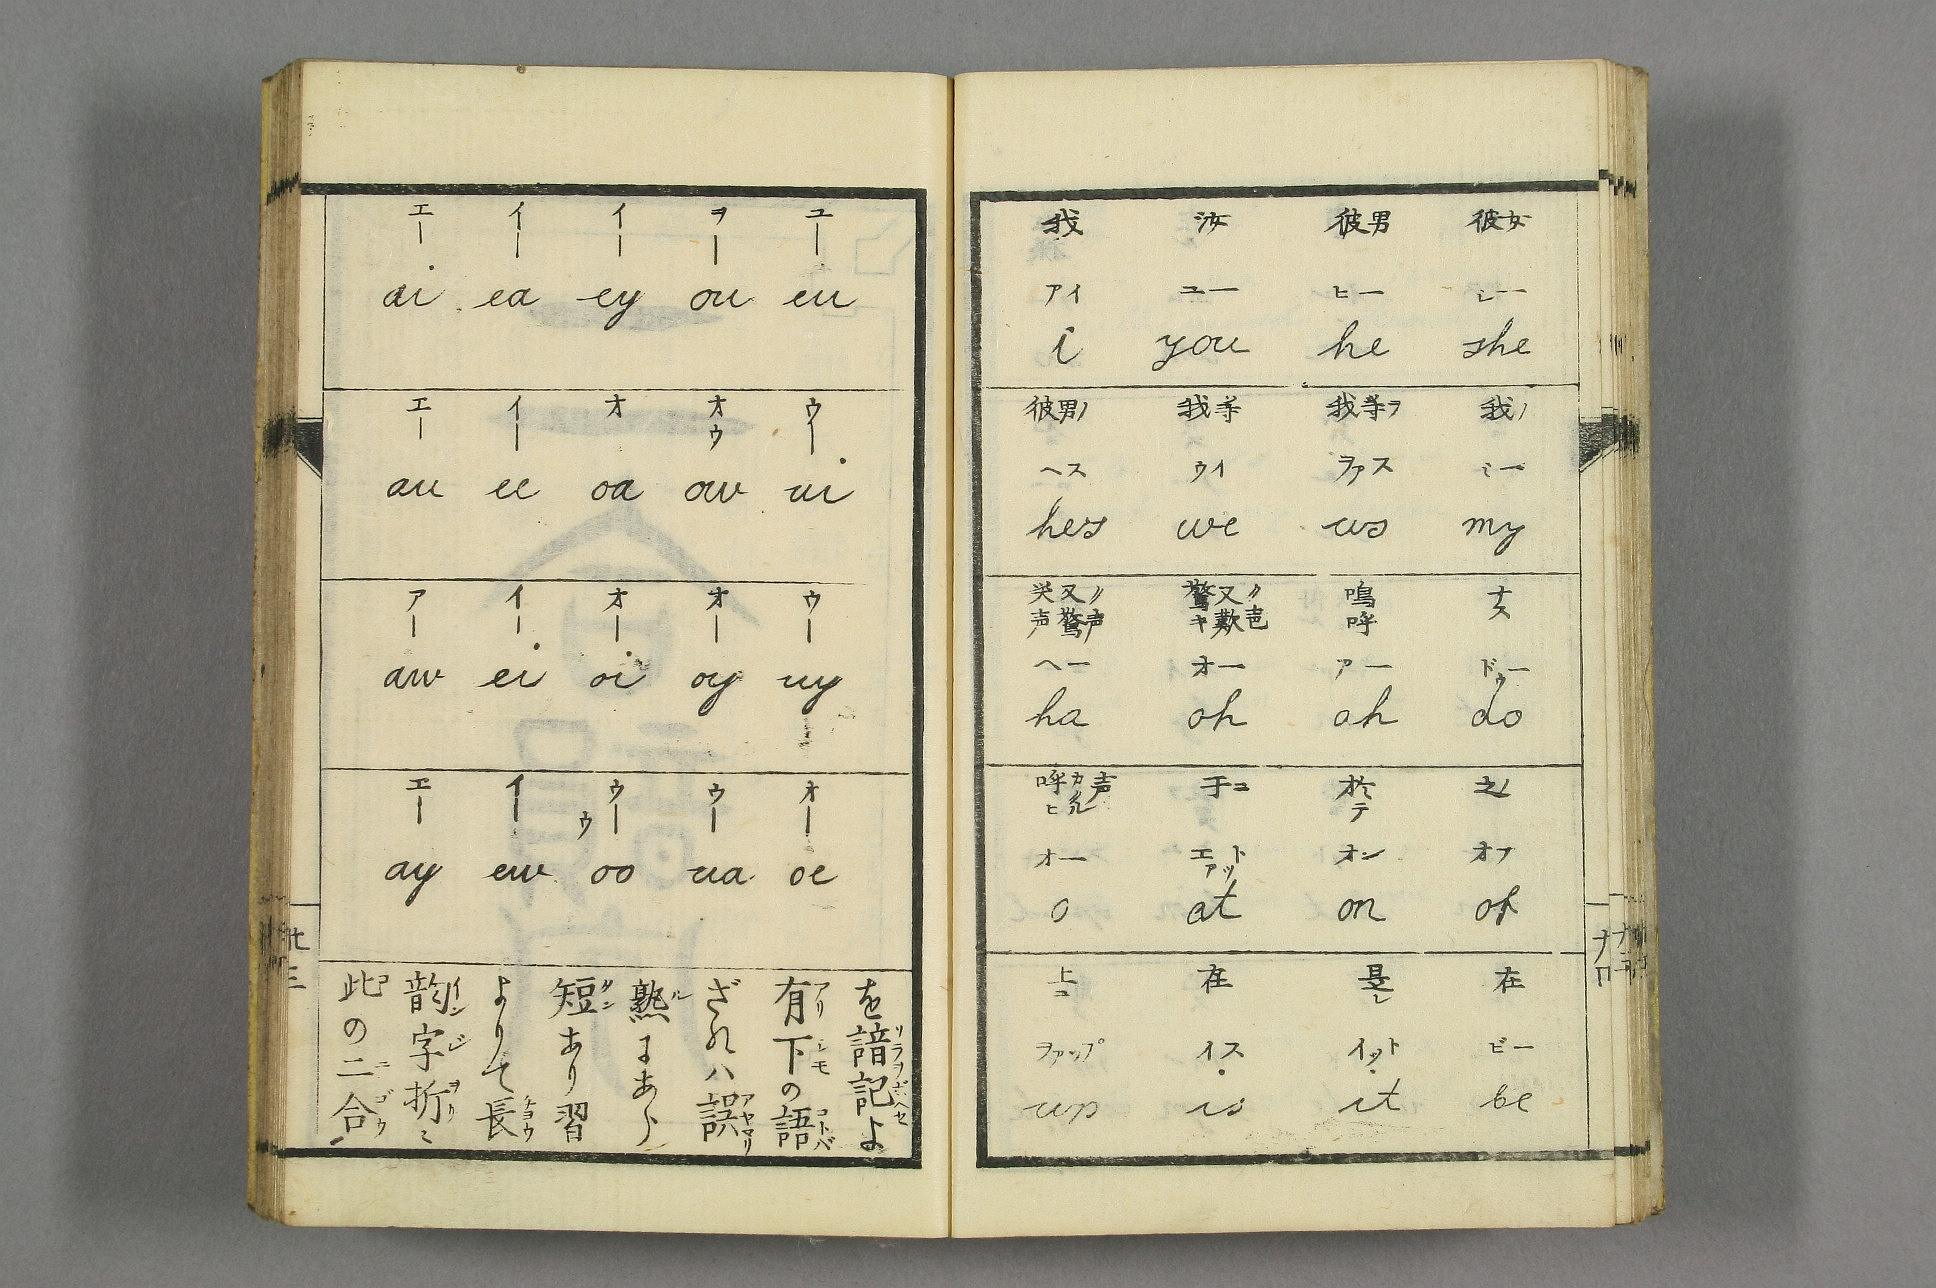 エー イー イー ヲー ユー
ai ea ey ou eu
エー イー オ オウ ウー
au ee oa ow ui
アー イー オー オー ウー
aw ei oi oy uy
エー イー ウーウ ウー オー
ay ew oo ua oe
此の二合
韵字折ミ
よりて長
短あり習
熟にあら
ざれハ誤
有下の語
を諳記よ
廿三
我 汝 彼男 彼女
アイ ユー ヒー シー
i you he she
彼男ノ 我等 我等ヲ 我ノ
ヘス ウイ ヲァス ミー
hes we us my
笑声又驚ノ声 驚キ又歎ク声 嗚呼 ナス
ヘー オー アー ドゥー
ha oh ah do
呼ヒカクル声 于コ 於テ 之ノ
オー エアット オン オフ
o at on of
上コ 在 是レ 在
ヲァップ イス イット ビー
up is it be